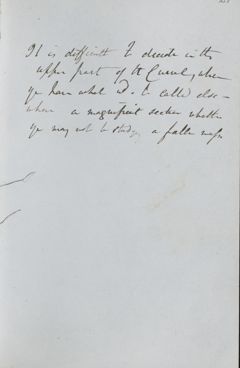 It is difficult to decide in the
upper part of the Curral, where
you have what wd. be called else-
where a magnificent section whether
you may not be studying a fallen mass